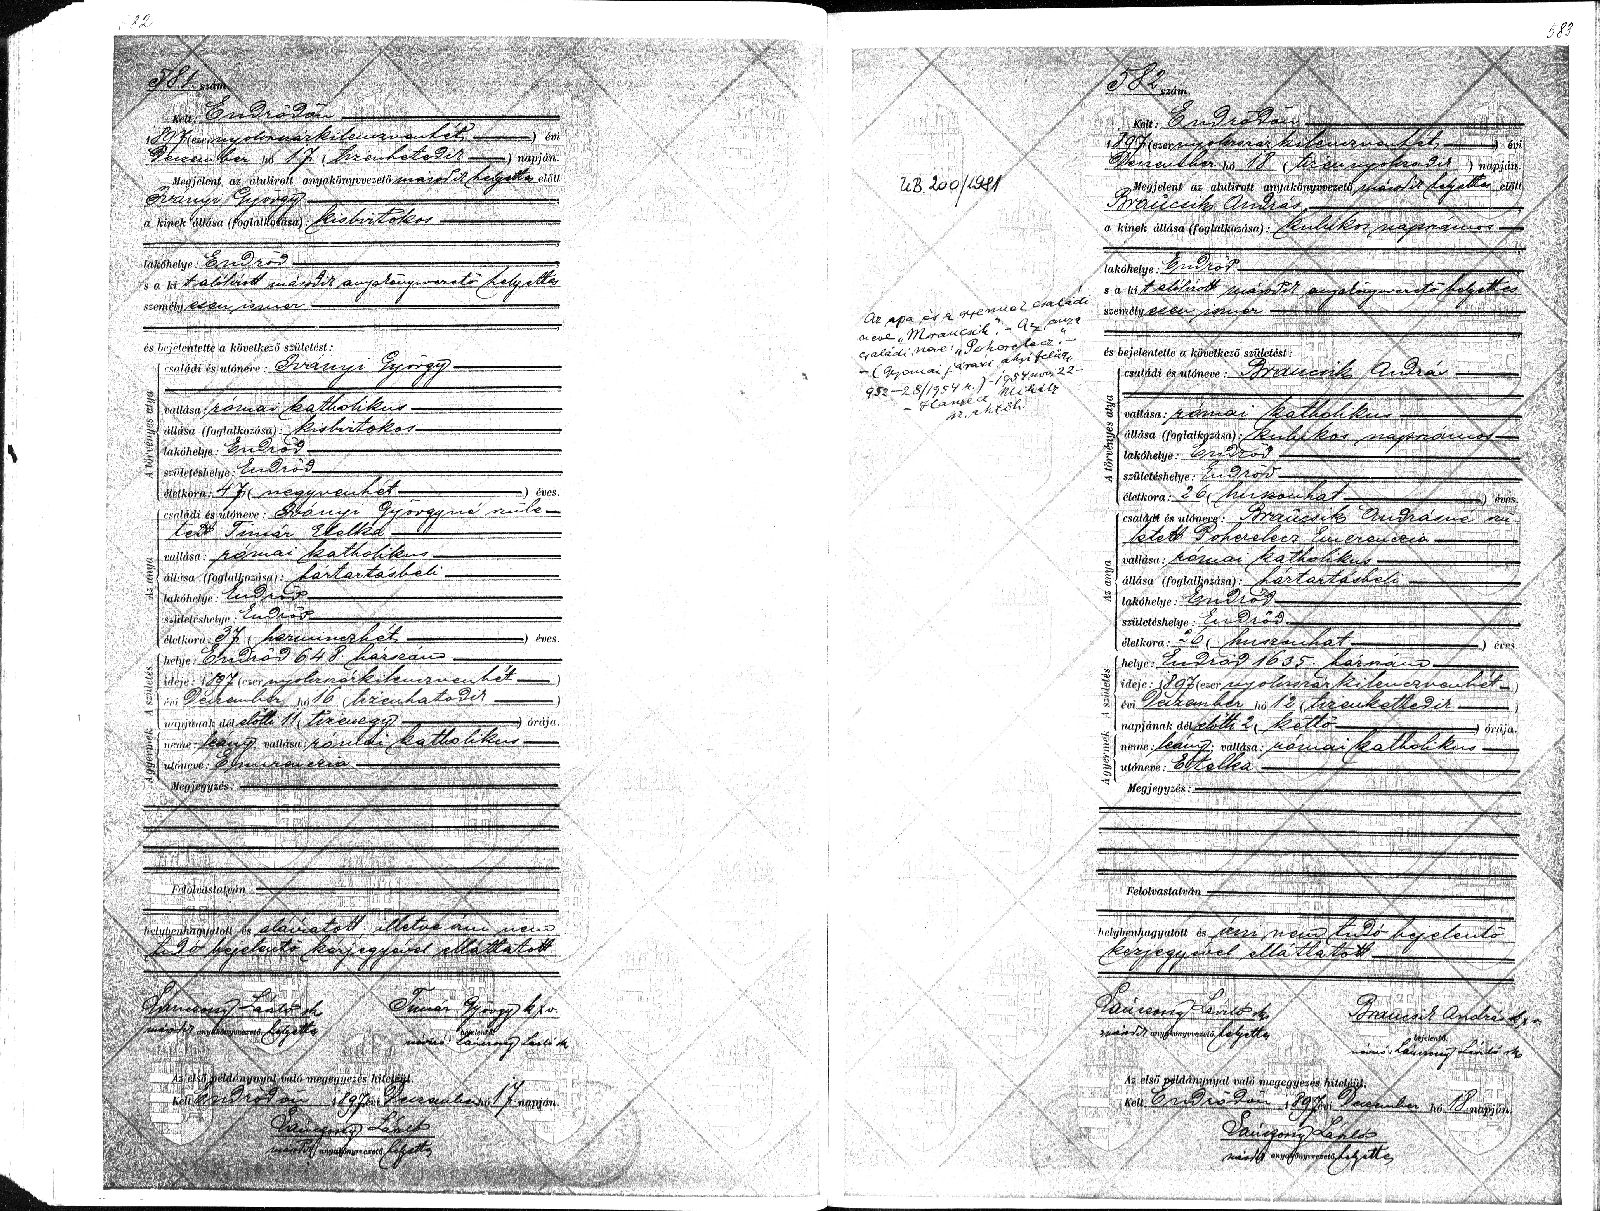 581. szám.
Kelt: Endrődön
1897 (ezernyolcszázkilenczvenhét) évi
Deczember hó 17 (tizenhetedik) napján.
Megjelent az alulirott anyakönyvvezető második helyettes előtt
Iványi György
a kinek állása (foglalkozása): kisbirtokos
lakóhelye: Endrőd
s a kit alólirott második anyakönyvvezető helyettes
személyesen ismer
és bejelentette a következő születést:
A törvényes atya
családi és utóneve: Iványi György
vallása: római katholikus
állása (foglalkozása): kisbirtokos
lakóhelye: Endrőd
születéshelye: Endrőd
életkora: 47 (negyvenhét) éves.
Az anya
családi és utóneve: Iványi Györgyné szüle-
tett Timár Etelka
vallása: római katholikus
állása (foglalkozása): háztartásbeli
lakóhelye: Endrőd
születéshelye: Endrőd
életkora: 37 (harminczhét) éves.
A gyermek A születés
helye: Endrőd 648 házszám
ideje: 1897 (ezernyolcszázkilenczvenhét)
évi Deczember hó 16 (tizenhatodik)
napjának dél előtti 11 (tizenegy) órája.
neme: leány; vallása: római katholikus
utóneve: Emerenczia
Megjegyzés:
Felolvastatván
helybenhagyatott és aláiratott illetve irni nem
tudó bejelentő kézjegyével elláttatott
László sk
második anyakönyvvezető helyettes
György k.x.v.
bejelentő.
László sk
Az első példánynyal való megegyezés hiteléül.
Kelt Endrődön 1897 évi Deczember hó 17 napján.
László
második anyakönyvvezető helyettes
583
582 szám.
Kelt: Endrődön
1897 (ezernyolcszázkilenczvenhét) évi
Deczember hó 18 (tizennyolczadik) napján.
Megjelent az alulirott anyakönyvvezető második helyettes előtt
Braucsik András
a kinek állása (foglalkozása): kubikos napszámos
lakóhelye: Endrőd
s a kit alólirott második anyakönyvvezető helyettes
személyesen ismer
és bejelentette a következő születést:
A törvényes atya
családi és utóneve: Braucsik András
vallása: római katholikus
állása (foglalkozása): kubikos napszámos
lakóhelye: Endrőd
születéshelye: Endrőd
életkora: 26 (huszonhat) éves.
Az anya
családi és utóneve: Braucsik Andrásné szü-
letett Poherelecz Emerenczia
vallása: római katholikus
állása (foglalkozása): háztartásbeli
lakóhelye: Endrőd
születéshelye: Endrőd
életkora: 26 (huszonhat) éves
A gyermek A születés
helye: Endrőd 1635 házszám
ideje: 1897 (ezernyolcszázkilenczvenhét)
évi Deczember hó 12 (tizenkettedik)
napjának dél előtti 2 (kettő) órája.
neme: leány; vallása: római katholikus
utóneve: Etelka
Megjegyzés:
Felolvastatván
helybenhagyatott és irni nem tudó bejelentő
kézjegyével elláttatott
László sk
második anyakönyvvezető helyettes
Braucsik András k.x.v.
bejelentő.
László sk
Az első példánynyal való megegyezés hiteléül.
Kelt Endrődön 1897 évi Deczember hó 18 napján.
László
második anyakönyvvezető helyettes
UB 200/1981
Az apa és a gyermek családi
neve „Mraucsik". - Az anya
családi neve: „Pohorelecz". -
952-28/1954 n.) - 1954 nov. 22-
Mihály